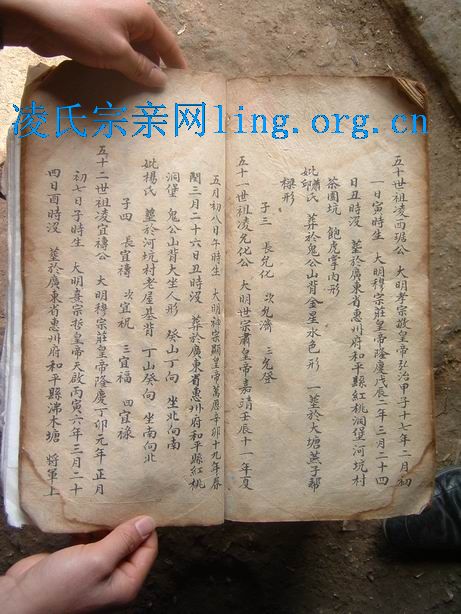 凌氏宗亲网ling.org.cn
五十世祖凌而琚公 大明孝宗敬皇帝弘治甲子十七年二月初
一日寅時生 大明穆宗莊皇帝隆慶戊辰二年三月二十四
日丑時没 塟於廣東省惠州府和平縣紅桃洞堡河坑村
茶園坑 飽虎掌肉形
妣 蕭氏 邱 葬於鬼公山背金星水色形 一塟於大塘燕子幇
樑形
子三 長允化 次允濟 三允登
五十一世祖凌允化公 大明世宗肅皇帝嘉靖壬辰十一年夏
五月初八日午時生 大明神宗顯皇帝萬曆辛卯十九年春
閏三月二十六日丑時没 葬於廣東省惠州府和平縣紅桃
洞堡 鬼公山背大坐人形 癸山丁向 坐北向南
妣楊氏 塟於河坑村老屋基背 丁山癸向 坐南向北
子四 長宜禱 次宜祝 三宜福 四宜祿
五十二世祖凌宜禱公 大明穆宗莊皇帝隆慶丁卯元年正月
初七日子時生 大明熹宗悊皇帝天啟丙寅六年三月二十
四日酉時没 塟於廣東省惠州府和平縣浰木塘 將軍上